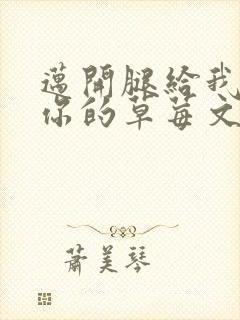 邁開腿給我
你的草莓文
蕭美琴